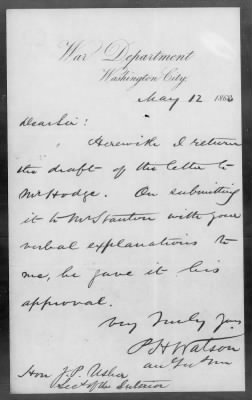 War Department
Washington City.
May 12 1863
Dear Sir:
Herewith I return
the draft of the letter to
Mr Hodge. On submitting
it to Mr Stanton with your
verbal explanations to
me, he gave it his
approval.
Very Truly Yrs
P H Watson
Hon J. P. Usher
Secty of the Interior